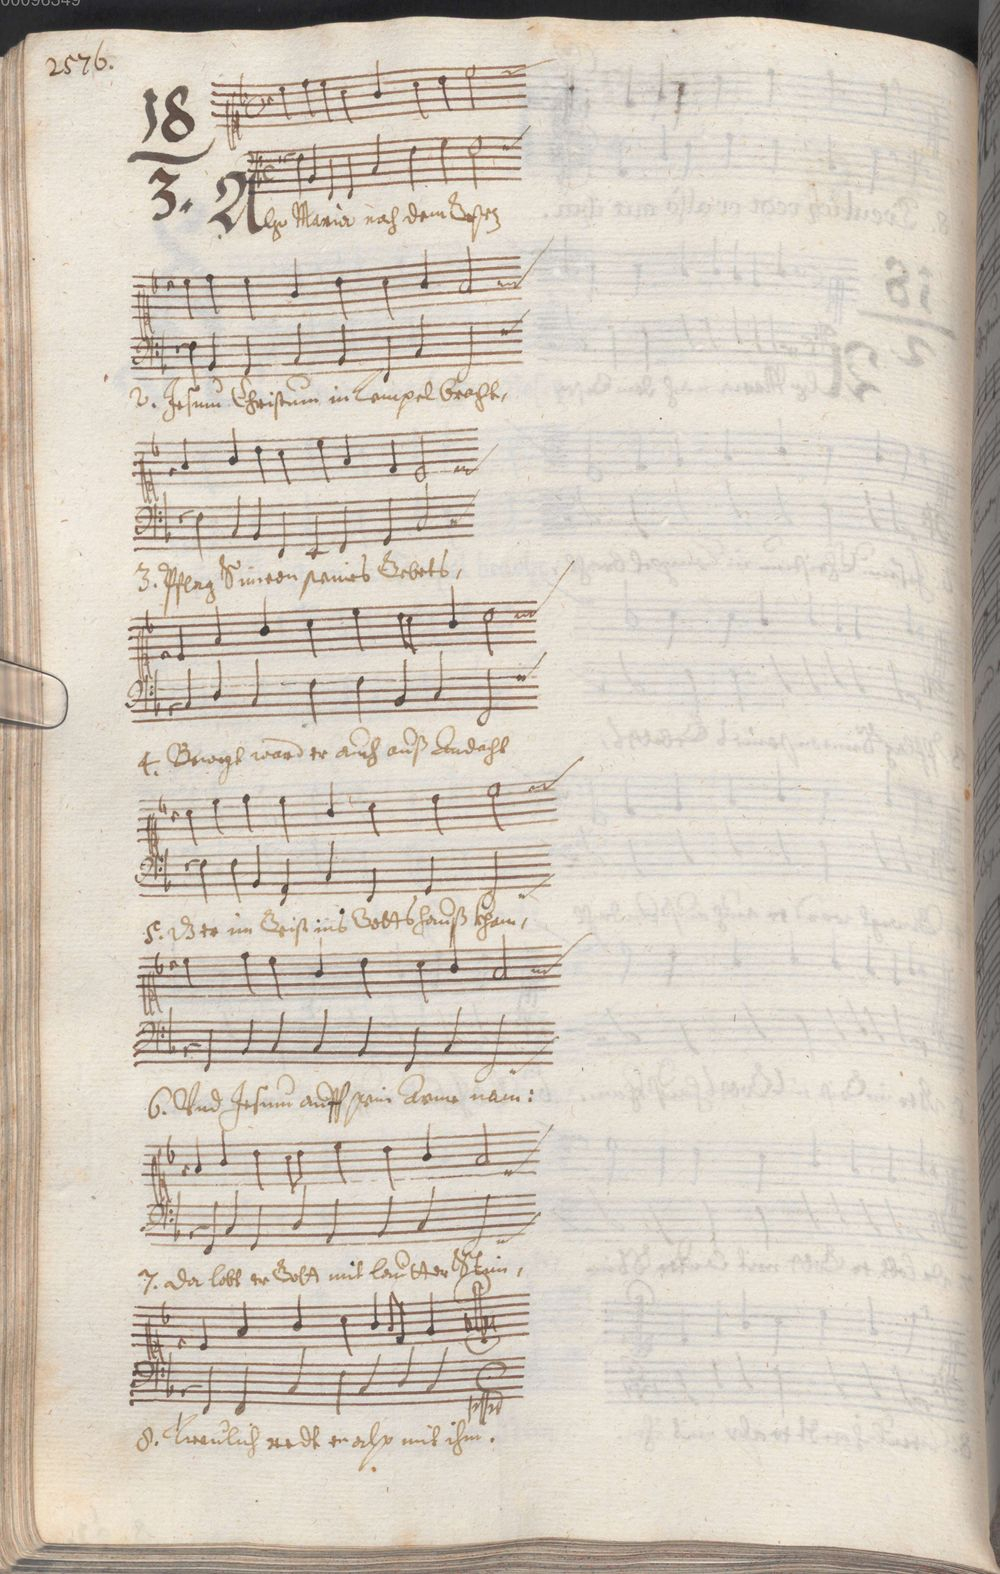 00096349
2576.
18
3. Also Maria nach dem Gesetz
2. Jesum Christum in Tempel bracht,
3. Pflag Simeon seines Gebets,
4. Bewegt ward er auch auß Andacht
5. Der im Geist ins Gotts hauß kham,
6. Und Jesum auff sein Arme nam:
7. da lobt er Gott mit lautter Stim,
8. Freulich redt er also mit ihm.